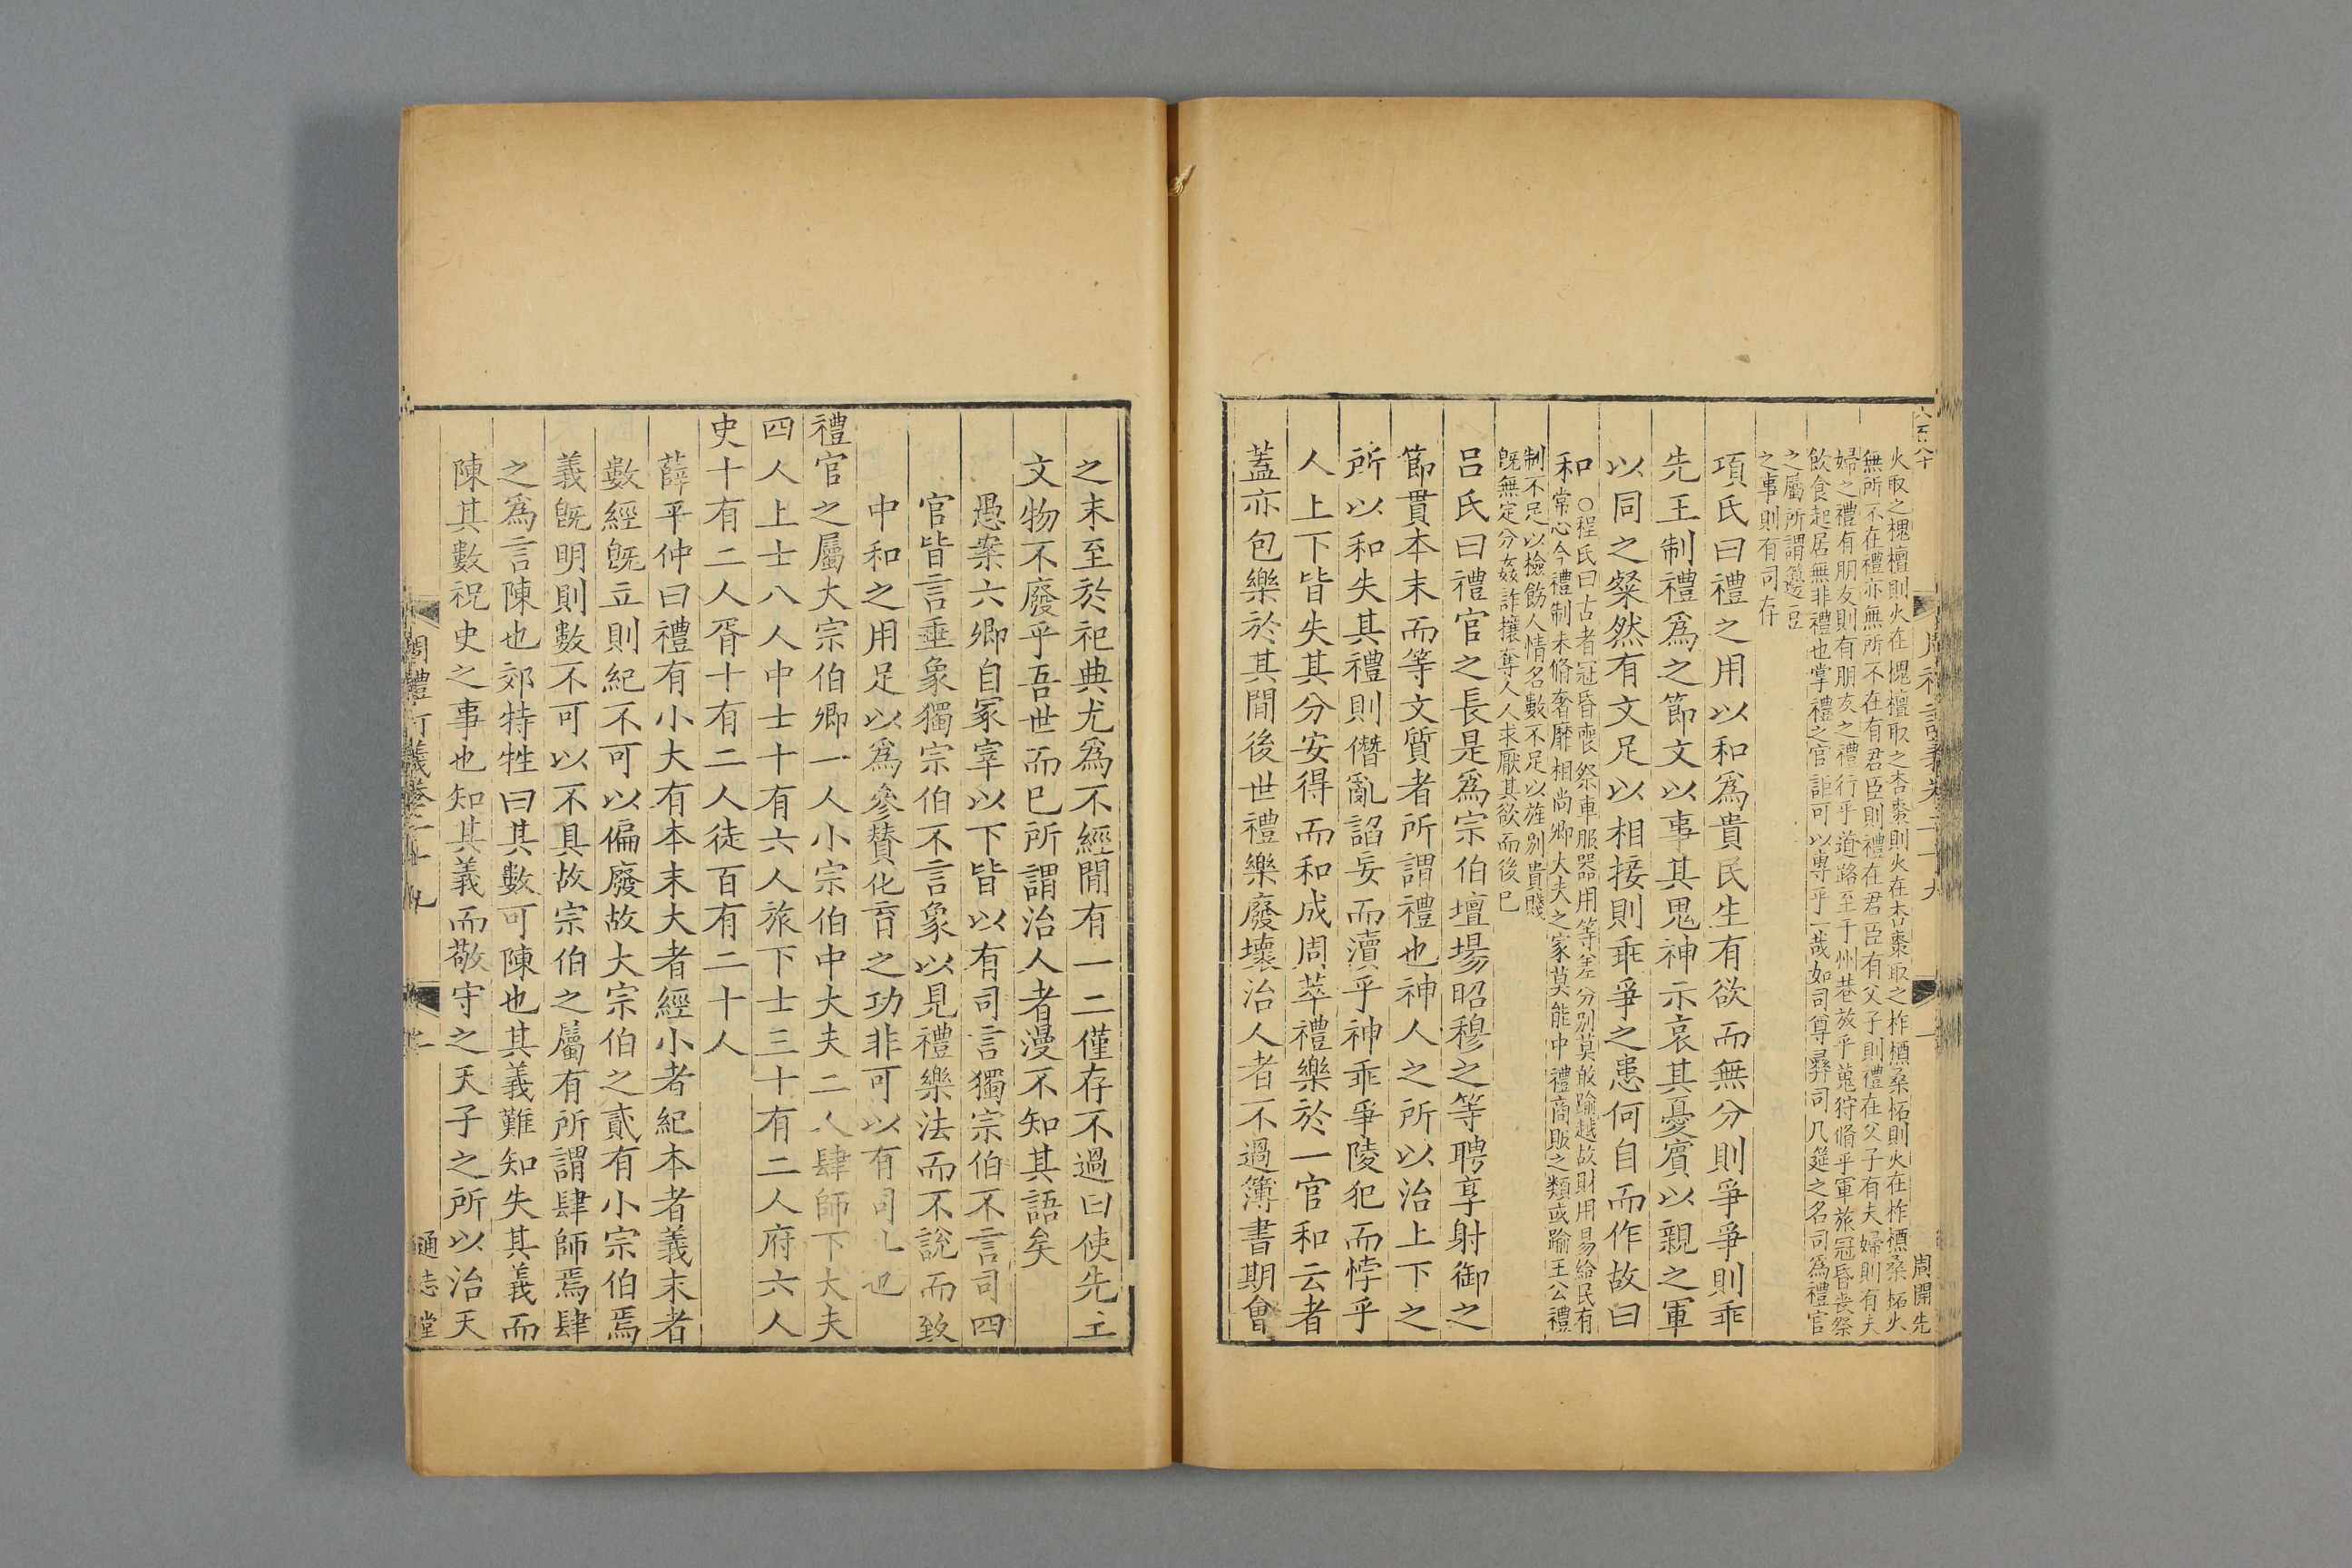 八百八十
周禮訂義卷二十九
一
周開先
火取之槐檀則火在槐檀取之杏棗則火在杏棗取之柞楢桑柘則火在柞楢桑柘火
無所不在禮亦無所不在有君臣則禮在君臣有父子則禮在父子有夫婦則有夫
婦之禮有朋友則有朋友之禮行乎道路至于州巷放乎蒐狩脩乎軍旅冠昏喪祭
飲食起居無非禮也掌禮之官詎可以專乎一哉如司尊彞司几筵之名司為禮官
之屬所謂籩豆
之事則有司存
項氏曰禮之用以和爲貴民生有欲而無分則爭爭則乖
先王制禮爲之節文以事其鬼神示哀其憂賓以親之軍
以同之粲然有文足以相接則乖爭之患何自而作故曰
和
○程氏曰古者冠昏喪祭車服器用等差分别莫敢踰越故財用易給民有
常心今禮制未脩奢靡相尚卿大夫之家莫能中禮商販之類或踰王公禮
制不足以檢飭人情名數不足以旌别貴賤
旣無定分姦詐攘奪人人求厭其欲而後已
呂氏曰禮官之長是爲宗伯壇場昭穆之等聘享射御之
節貫本末而等文質者所謂禮也神人之所以治上下之
所以和失其禮則僭亂諂妄而瀆乎神乖爭陵犯而悖乎
人上下皆失其分安得而和成周萃禮樂於一官和云者
蓋亦包樂於其間後世禮樂廢壞治人者不過簿書期會
之末至於祀典尤爲不經間有一二僅存不過曰使先王
文物不廢乎吾世而已所謂治人者漫不知其語矣
愚案六卿自冢宰以下皆以有司言獨宗伯不言司四
官皆言垂象獨宗伯不言象以見禮樂法而不說而致
中和之用足以爲參贊化育之功非可以有司也
禮官之屬大宗伯卿一人小宗伯中大夫二人肆師下大夫
四人上士八人中士十有六人旅下士三十有二人府六人
史十有二人胥十有二人徒百有二十人
薛平仲曰禮有小大有本末大者經小者紀本者義末者
數經旣立則紀不可以偏廢故大宗伯之貳有小宗伯焉
義旣明則數不可以不具故宗伯之屬有所謂肆師焉肆
之爲言陳也郊特牲曰其數可陳也其義難知失其義而
陳其數祝史之事也知其義而敬守之天子之所以治天
周禮訂義卷二十九
二
通志堂